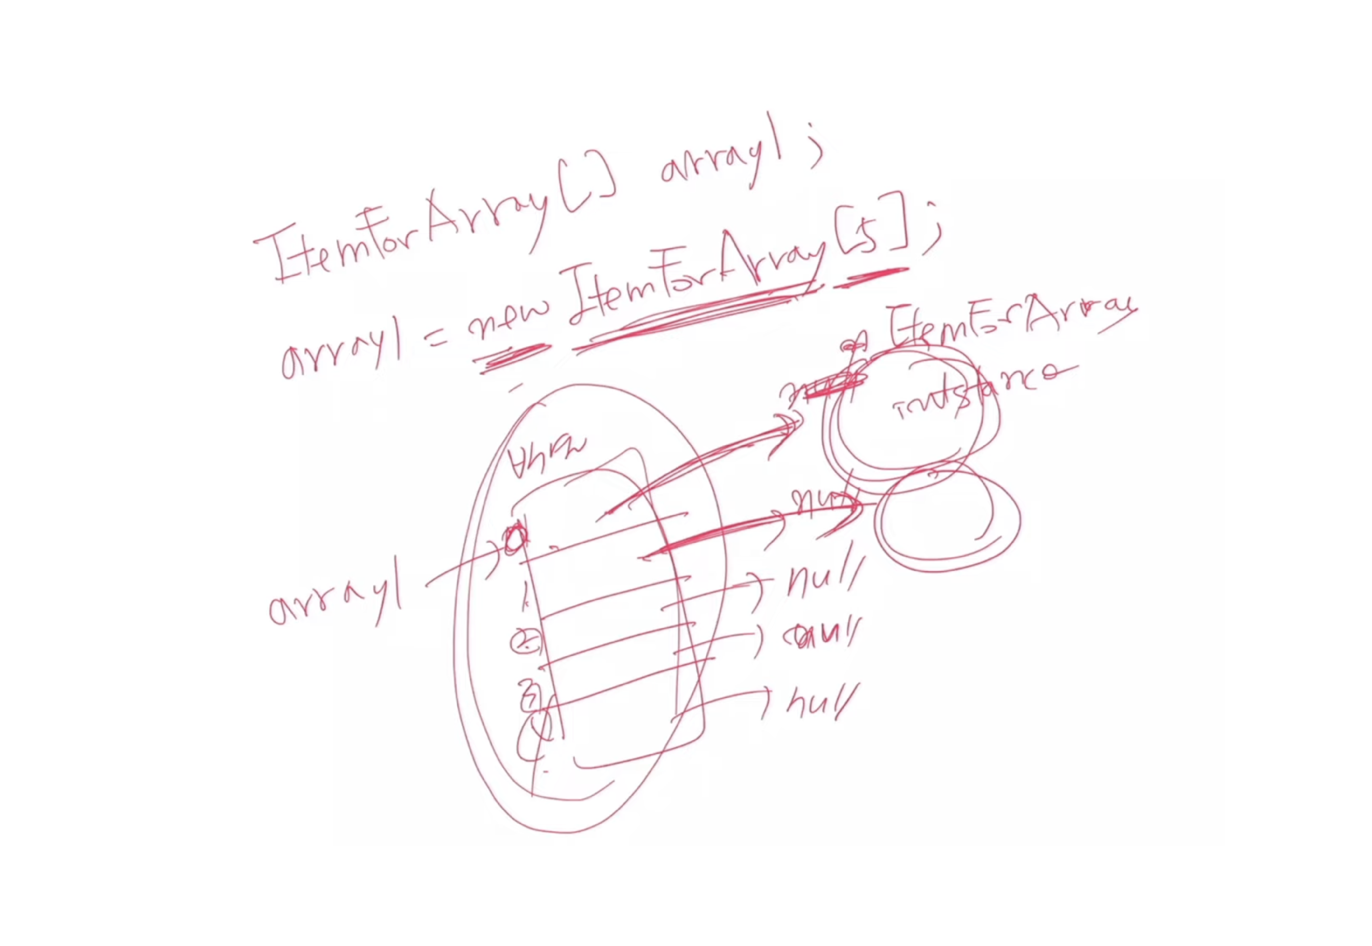 ItemForArray[] array1;
array1 = new ItemForArray[5];
ItemForArray
instance
null
0
array1
1
null
2
null
3
4
null